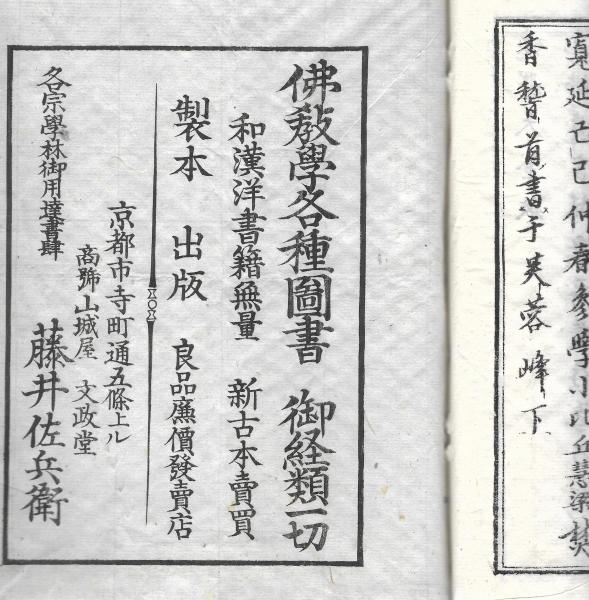 寛延己巳仲春參學小比丘慧梁焚
香稽首書于芙蓉峰下
佛教學各種圖書 御経類一切
和漢洋書籍無量 新古本賣買
製本 出版 良品廉價發賣店
京都市寺町通五條上ル
商號山城屋 文政堂
藤井佐兵衛
各宗學林御用達書肆